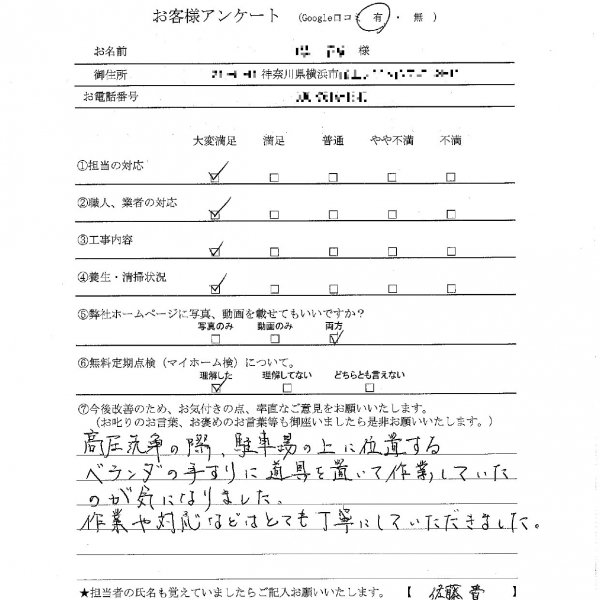 お客様アンケート (Google口コミ 有 ・ 無 )
お名前 様
御住所 神奈川県横浜市
お電話番号
大変満足 満足 普通 やや不満 不満
①担当の対応
②職人、業者の対応
③工事内容
④養生・清掃状況
⑤弊社ホームページに写真、動画を載せてもいいですか?
写真のみ 動画のみ 両方
⑥無料定期点検(マイホーム検)について。
理解した 理解してない どちらとも言えない
⑦今後改善のため、お気付きの点、率直なご意見をお願いいたします。
(お叱りのお言葉、お褒めのお言葉等も御座いましたら是非お願いします。)
高圧洗浄の際、駐車場の上に位置する
ベランダの手すりに道具を置いて作業していた
のが気になりました。
作業や対応などはとても丁寧にしていただきました。
★担当者の氏名も覚えていましたらご記入お願いします。 【 佐藤 貴 】